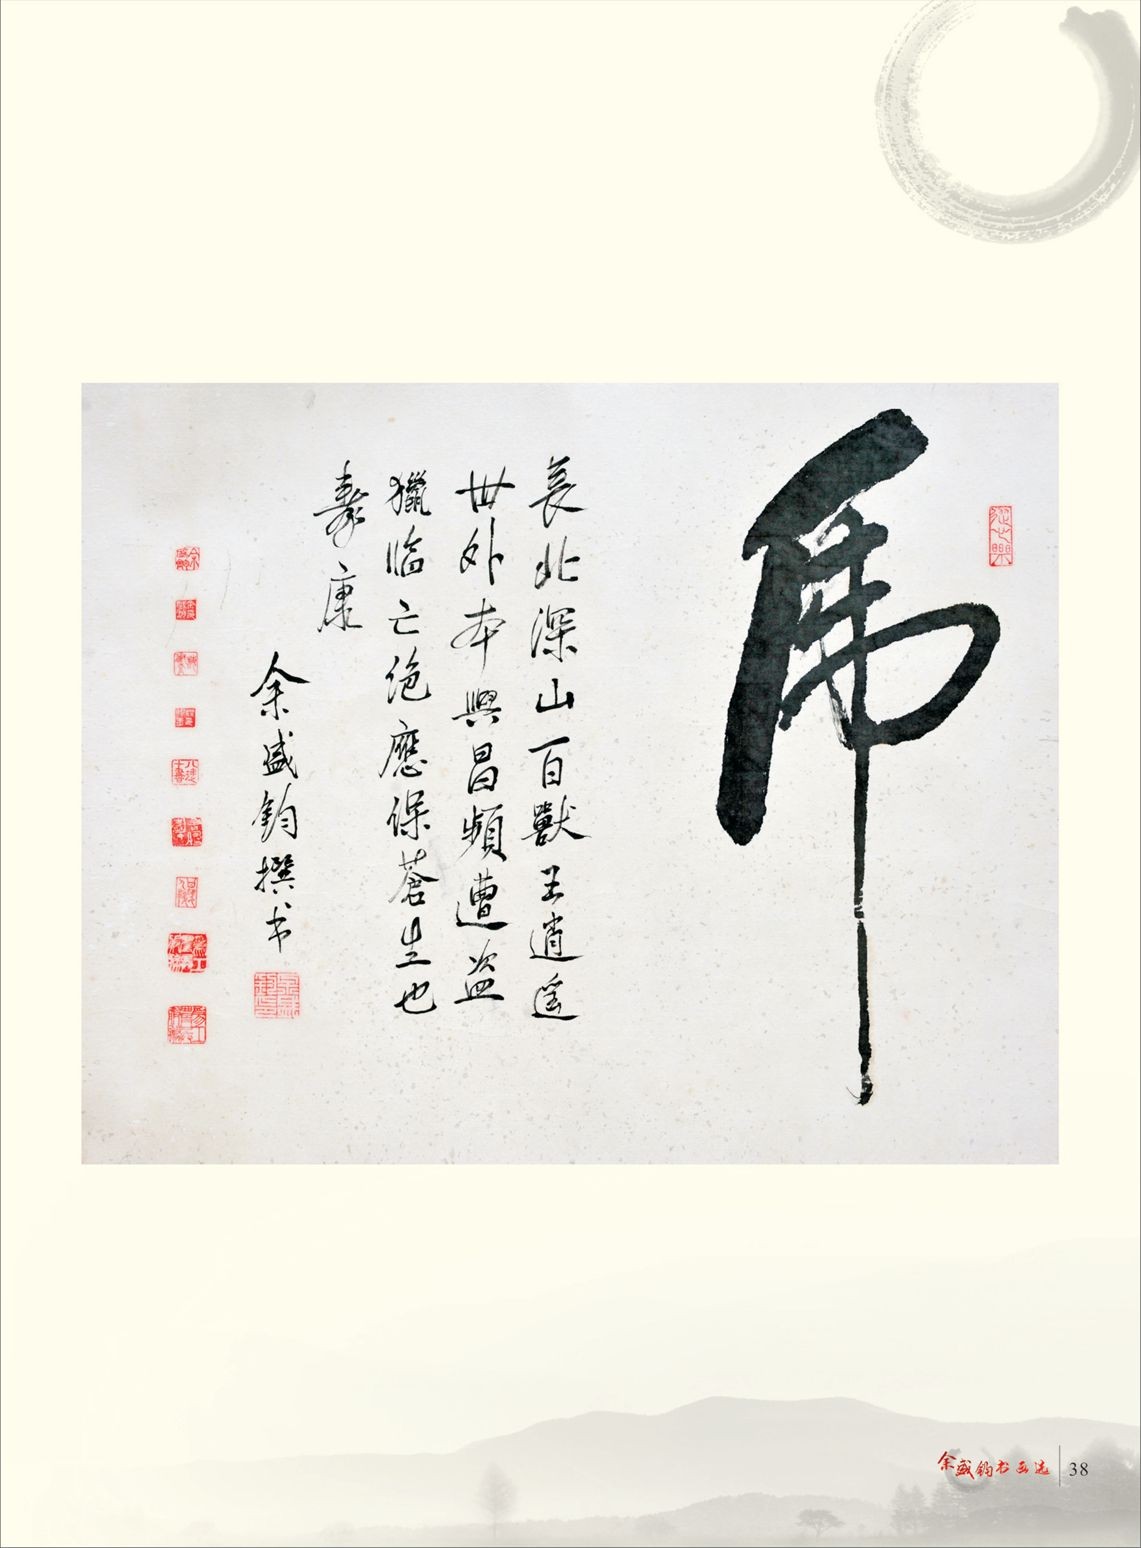 虎
長北深山百獸王逍遥
世外本興昌頻遭盗
獵临亡绝應保蒼生也
壽康
余盛鈞撰书
余盛钧书画选
38